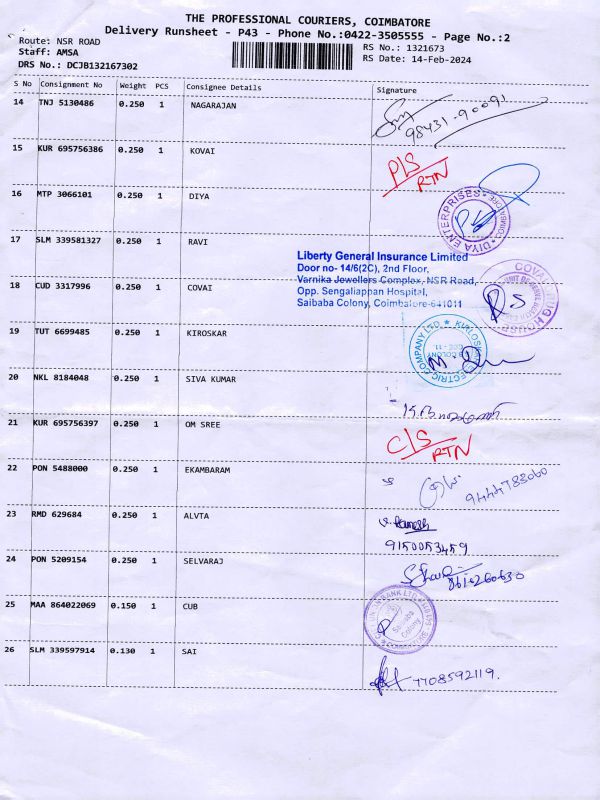 THE PROFESSIONAL COURIERS, COIMBATORE
Delivery Runsheet - P43 - Phone No.:0422-3505555 - Page No.:2
Route: NSR ROAD
Staff: AMSA
DRS No.: DCJB132167302
RS No.: 1321673
RS Date: 14-Feb-2024
S No Consignment No Weight PCS Consignee Details Signature
14 TNJ 5130486 0.250 1 NAGARAJAN
98431-90091
15 KUR 695756386 0.250 1 KOVAI
P/S
RTN
16 MTP 3066101 0.250 1 DIYA
DIYA ENTERPRISES
17 SLM 339581327 0.250 1 RAVI
Liberty General Insurance Limited
Door no- 14/6(2C), 2nd Floor,
Varnika Jewellers Complex, NSR Road,
Opp. Sengaliappan Hospital,
Saibaba Colony, Coimbalore-641011
18 CUD 3317996 0.250 1 COVAI
RS
19 TUT 6699485 0.250 1 KIROSKAR
ELECTRIC COMPANY LTD.
20 NKL 8184048 0.250 1 SIVA KUMAR
21 KUR 695756397 0.250 1 OM SREE
C/S
RTN
22 PON 5488000 0.250 1 EKAMBARAM
9444783060
23 RMD 629684 0.250 1 ALVTA
9150053459
24 PON 5209154 0.250 1 SELVARAJ
25 MAA 864022069 0.150 1 CUB
Saibaba
Colony
26 SLM 339597914 0.130 1 SAI
7708592119.